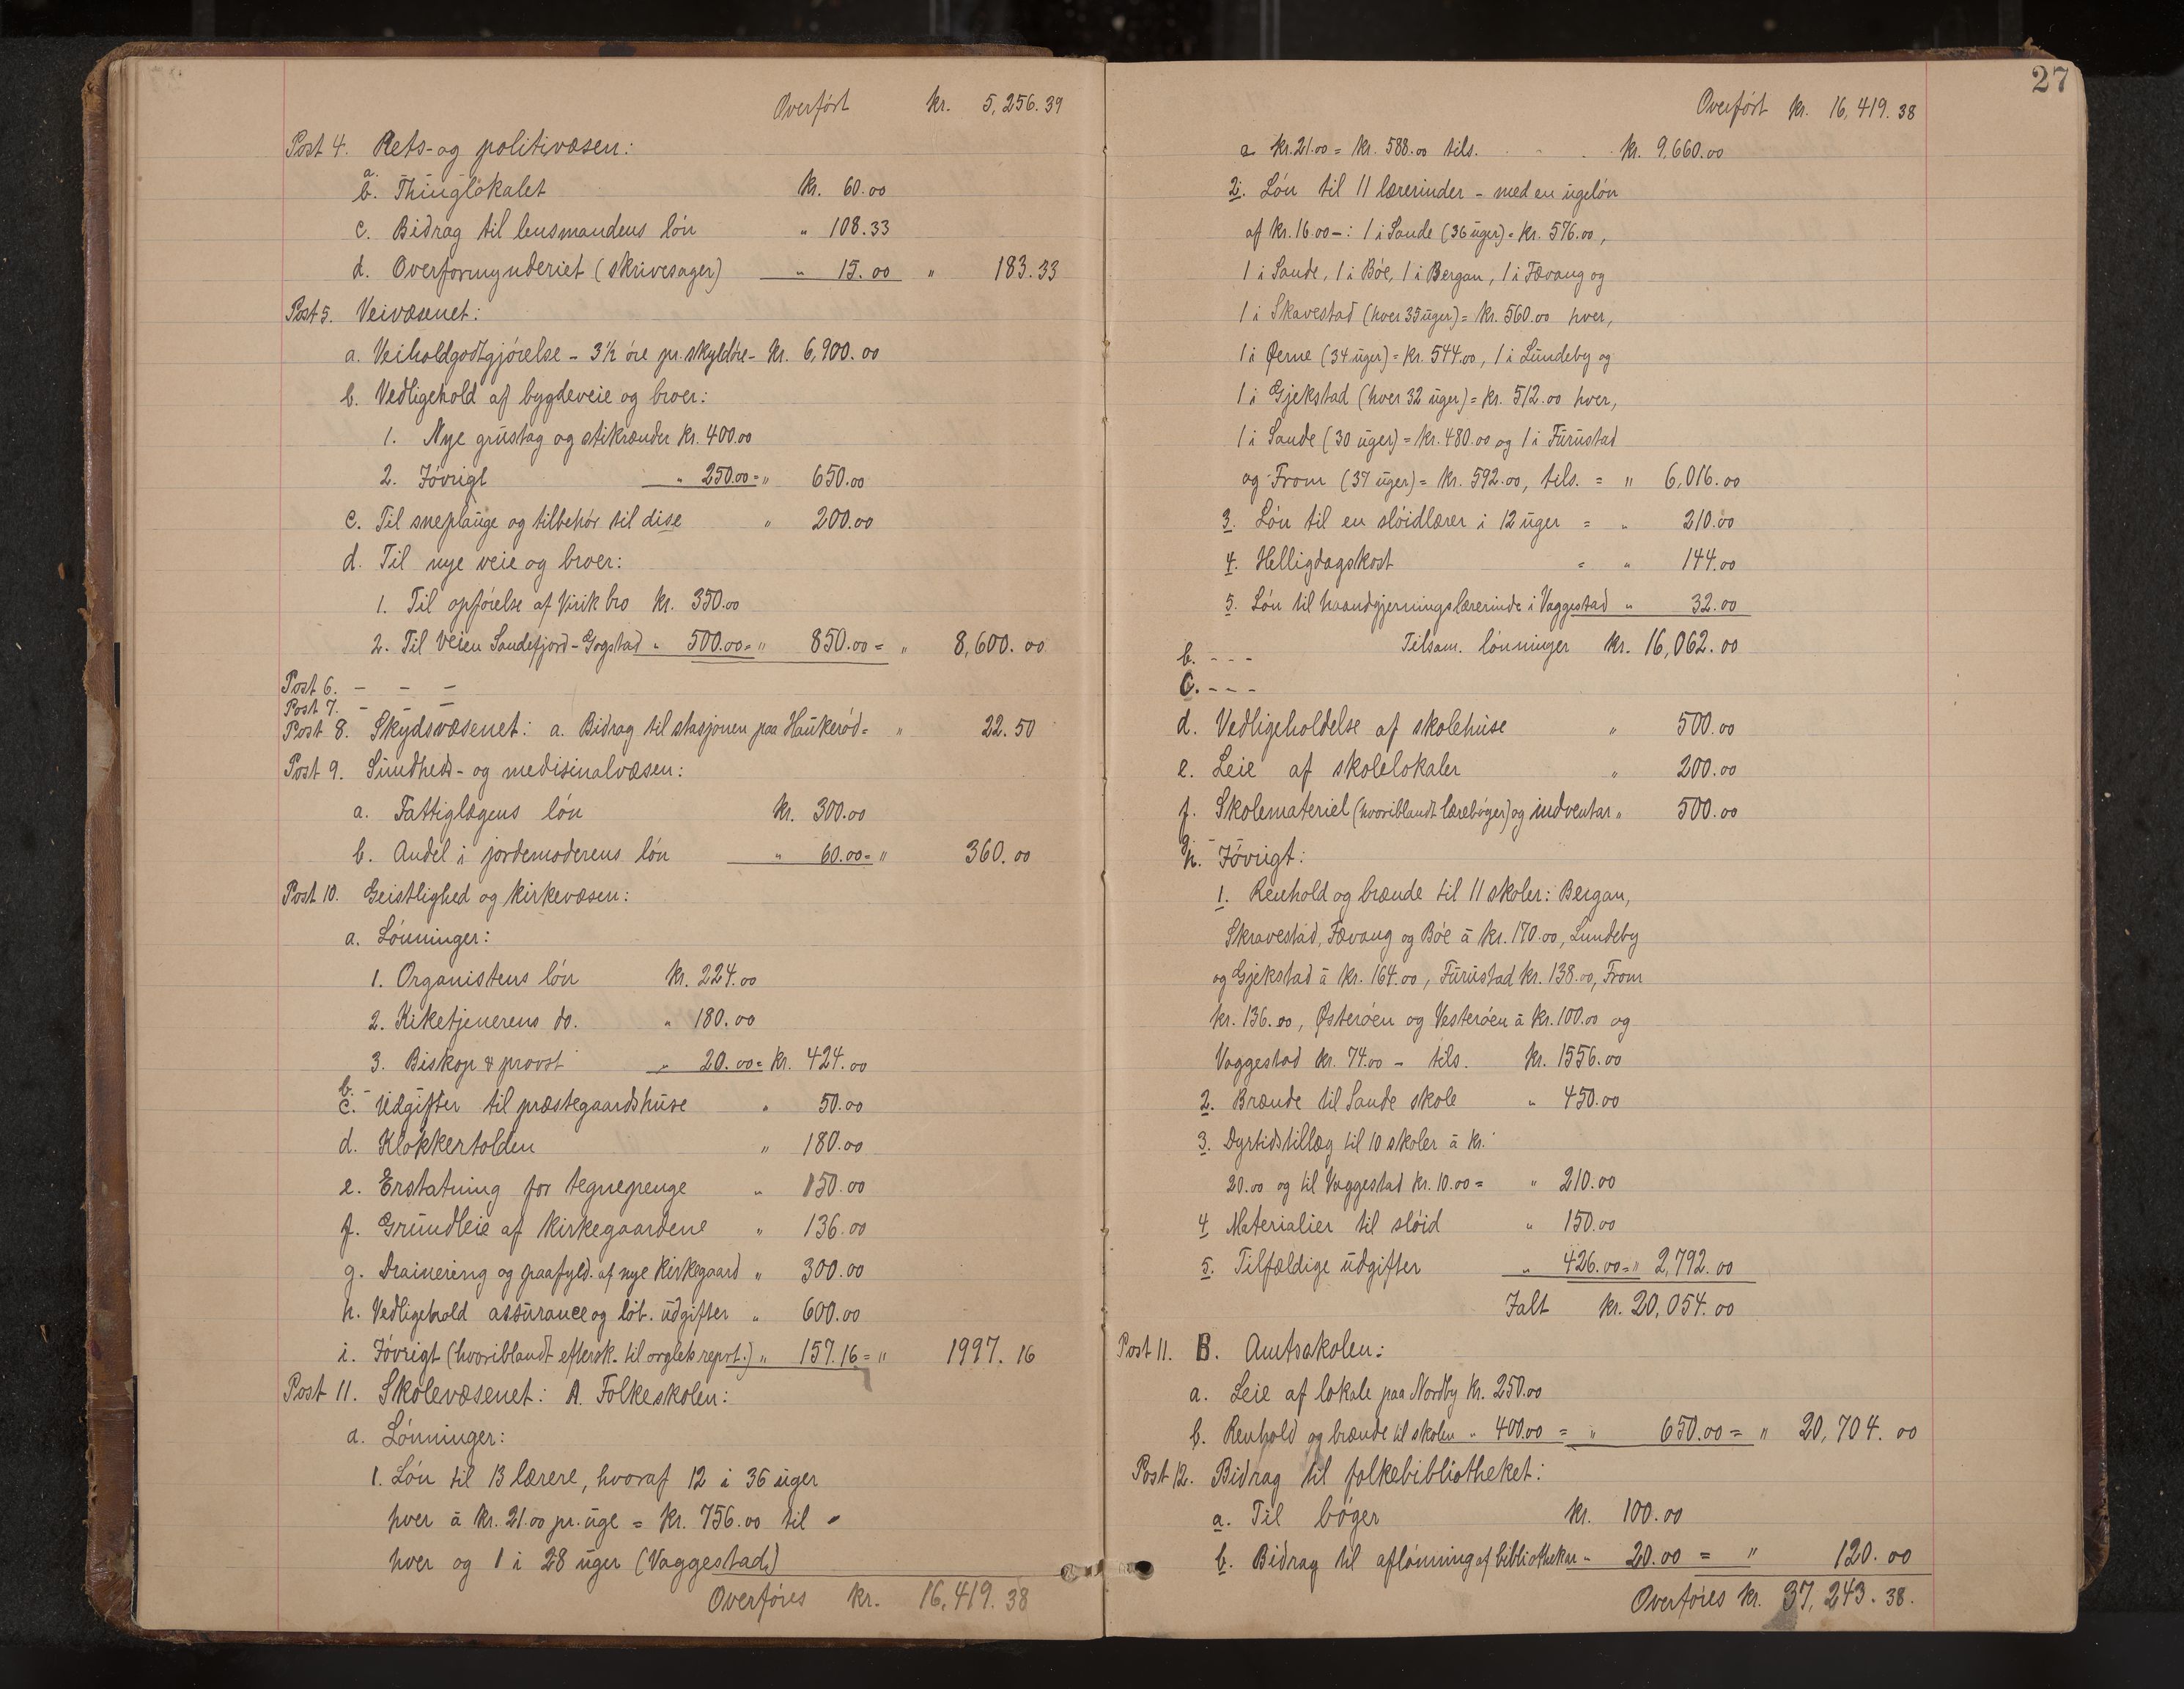 Overført kr. 5,256.39
Post 4. Rets- og politivæsen:
a.
b. Thinglokalet kr. 60.00
c. Bidrag til lensmandens løn " 108.33
d. Overformynderiet (skrivesager) " 15.00 " 183.33
Post 5. Veivæsenet:
a. Veiholdgodtgjørelse - 3½ øre pr. skyldøre - kr. 6,900.00
b. Vedligehold af bygdeveie og broer:
1. Nye grustag og stikrænder kr. 400.00
2. Iøvrigt " 250.00 = " 650.00
c. Til sneplauge og tilbehør til dise " 200.00
d. Til nye veie og broer:
1. Til opførelse af Virik bro kr. 350.00
2. Til veien Sandefjord - Gogstad " 500.00 = " 850.00 = " 8,600.00
Post 6. - - -
Post 7. - - -
Post 8. Skydsvæsenet: a. Bidrag til stasjonen paa Haukerød = " 22.50
Post 9. Sundheds- og medisinalvæsen:
a. Fattiglægens løn kr. 300.00
b. Andel i jordemoderens løn " 60.00 = " 360.00
Post 10. Geistlighed og kirkevæsen:
a. Lønninger:
1. Organistens løn kr. 224.00
2. Kiketjenerens do. " 180.00
3. Biskop & provst " 20.00 = kr. 424.00
b. -
c. Udgifter til præstegaardshuse " 50.00
d. Klokkertolden " 180.00
e. Erstatning for tegnepenge " 150.00
f. Grundleie af kirkegaardene " 136.00
g. Drainering og paafyld. af nye kirkegaard " 300.00
h. Vedligehold assurance og løb. udgifter " 600.00
i. Iøvrigt (hvoriblandt eftersk. til orglets reprt.) " 157.16 = " 1997.16
Post 11. Skolevæsenet: A. Folkeskolen:
a. Lønninger:
1. Løn til 13 lærere, hvoraf 12 i 36 uger
hver à kr. 21.00 pr. uge = kr. 756.00 til
hver og 1 i 28 uger (Vaggestad)
Overføres kr. 16,419.38
27
Overført kr. 16,419.38
à kr. 21.00 = kr. 588.00 tils. kr. 9,660.00
2. Løn til 11 lærerinder - med en ugeløn
af kr. 16.00 -: 1 i Sande (36 uger) = kr. 576.00,
1 i Sande, 1 i Bøe, 1 i Bergan, 1 i Fævang og
1 i Skavestad (hver 35 uger) = kr. 560.00 hver,
1 i Øerne (34 uger) = kr. 544.00, 1 i Lundeby og
1 i Gjekstad (hver 32 uger) = kr. 512.00 hver,
1 i Sande (30 uger) = kr. 480.00 og 1 i Furustad
og From (37 uger) = kr. 592.00, tils. = " 6,016.00
3. Løn til en sløidlærer i 12 uger = " 210.00
4. Helligdagskost = " 144.00
5. Løn til haandgjerningslærerinde i Vaggestad " 32.00
Tilsam. lønninger kr. 16,062.00
b. - - -
c. - - -
d. Vedligeholdelse af skolehuse " 500.00
e. Leie af skolelokaler " 200.00
f. Skolemateriel (hvoriblandt lærebøger) og indventar " 500.00
g. -
h. Iøvrigt:
1. Renhold og brænde til 11 skoler: Bergan,
Skravestad, Fævang og Bøe à kr. 170.00, Lundeby
og Gjekstad à kr. 164.00, Furustad kr. 138.00, From
kr. 136.00, Østerøen og Vesterøen à kr. 100.00 og
Vaggestad kr. 74.00 - tils. kr. 1556.00
2. Brænde til Sande skole " 450.00
3. Dyrtidstillæg til 10 skoler à kr.
20.00 og til Vaggestad kr. 10.00 = " 210.00
4. Materialier til sløid " 150.00
5. Tilfældige udgifter " 426.00 = " 2,792.00
Ialt kr. 20,054.00
Post 11. B. Amtsskolen:
a. Leie af lokale paa Nordby kr. 250.00
b. Renhold og brænde til skolen " 400.00 = " 650.00 = " 20,704.00
Post 12. Bidrag til folkebibliotheket:
a. Til bøger kr. 100.00
b. Bidrag til aflønning af bibliothekar " 20.00 = " 120.00
Overføres kr. 37,243.38.